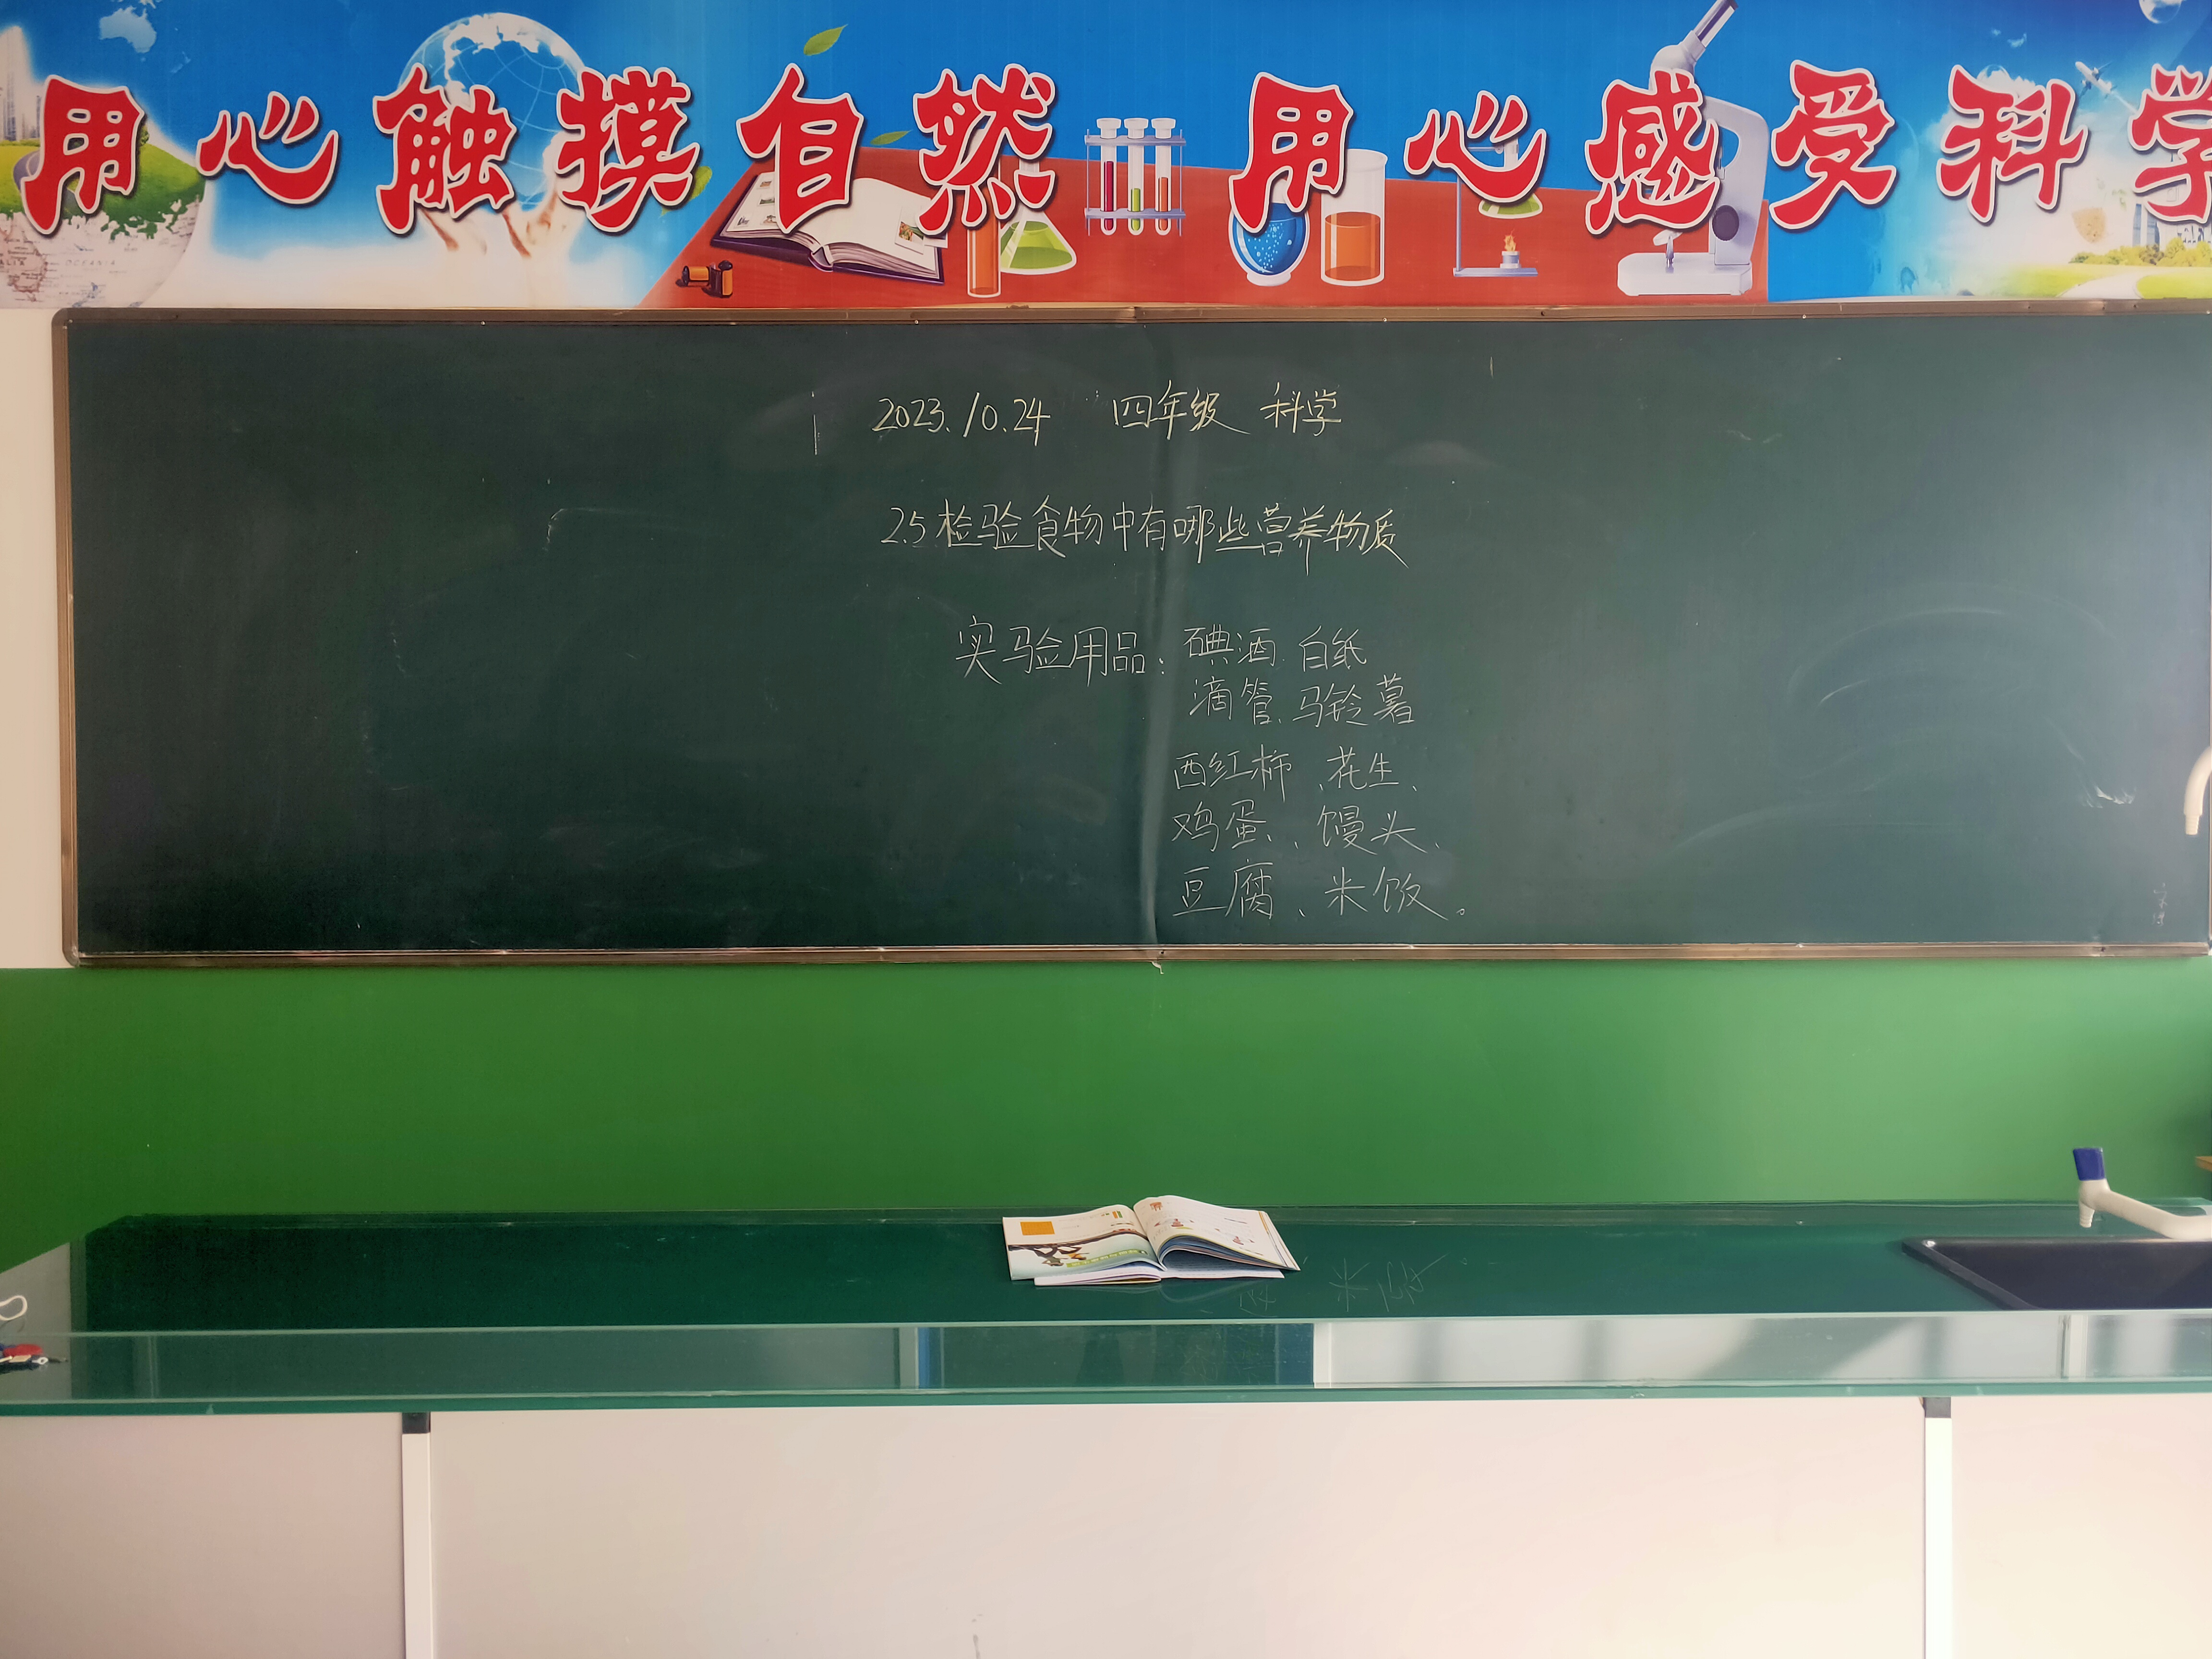 用心触摸自然 用心感受科学
2023.10.24 四年级 科学
2.5检验食物中有哪些营养物质
实验用品：碘酒、白纸
滴管、马铃薯
西红柿、花生、
鸡蛋、馒头、
豆腐、米饭。